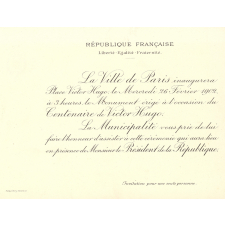 RÉPUBLIQUE FRANÇAISE
Liberté-Égalité-Fraternité
La Ville de Paris inaugurera
Place Victor Hugo, le Mercredi 26 Février 1902
à 3 heures, le Monument érigé à l'occasion du
Centenaire de Victor Hugo.
La Municipalité vous prie de lui
faire l'honneur d'assister à cette cérémonie qui aura lieu
en présence de Monsieur le Président de la République.
Invitation pour une seule personne.